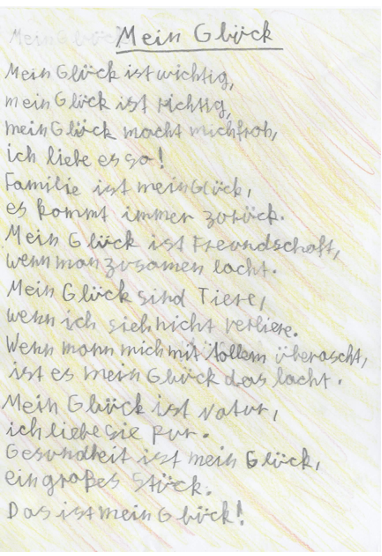 Mein Glück
Mein Glück ist wichtig,
mein Glück ist richtig,
mein Glück macht mich froh,
ich liebe es so!
Familie ist mein Glück,
es kommt immer zurück.
Mein Glück ist Freundschaft,
wenn man zusamen lacht.
Mein Glück sind Tiere,
wenn ich sieh nicht verliere.
Wenn mann mich mit tollem überascht,
ist es mein Glück das lacht.
Mein Glück ist Natur,
ich liebe sie pur.
Gesundheit ist mein Glück,
ein großes Stück.
Das ist mein Glück!